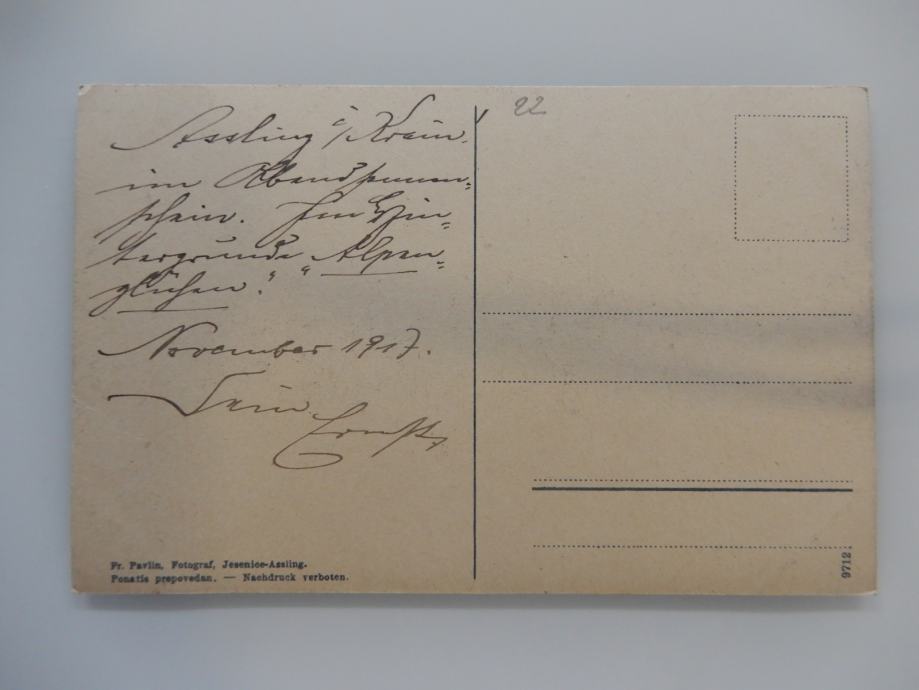 Assling i/Krain
im Abendsonnen=
schein. Im Hin=
tergrunde „Alpen=
glühen“.
November 1917.
Dein
Ernst
22
Fr. Pavlin, Fotograf, Jesenice-Assling.
Ponatis prepovedan. — Nachdruck verboten.
9712